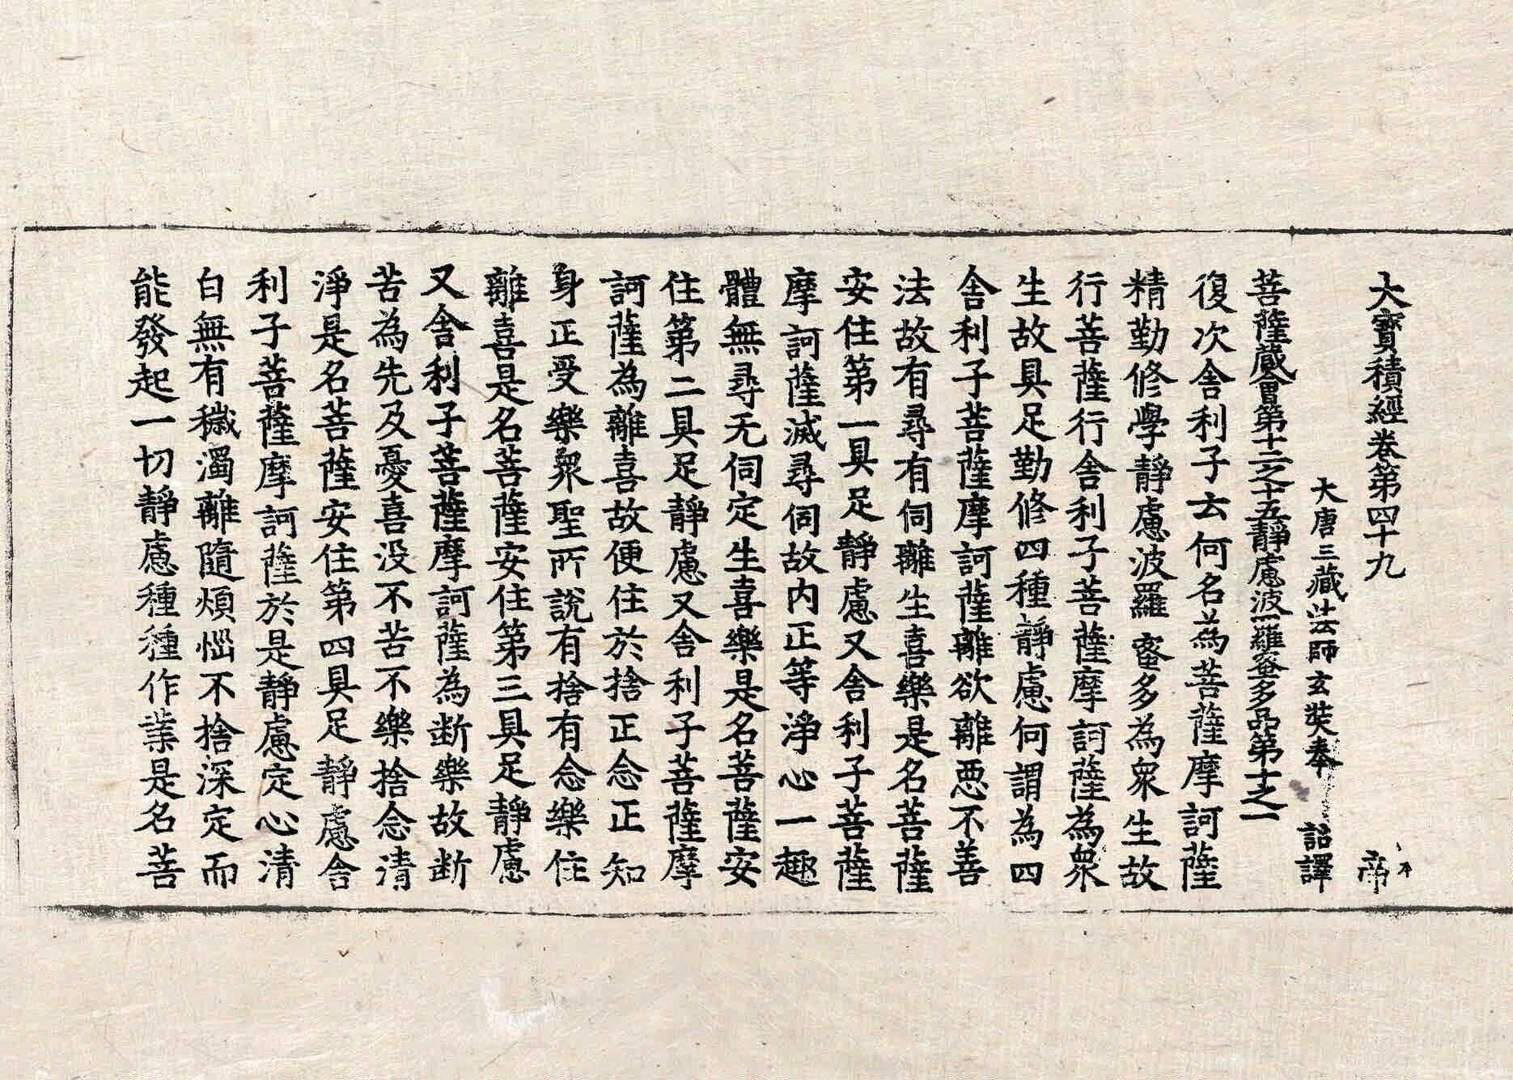 大寶積經卷第四十九 帝
大唐三藏法師玄奘奉 詔譯
菩薩藏會第十二之十五靜慮波羅蜜多品第十之一
復次舍利子云何名為菩薩摩訶薩
精勤修學靜慮波羅蜜多為眾生故
行菩薩行舍利子菩薩摩訶薩為眾
生故具足勤修四種靜慮何謂為四
舍利子菩薩摩訶薩離欲離惡不善
法故有尋有伺離生喜樂是名菩薩
安住第一具足靜慮又舍利子菩薩
摩訶薩滅尋伺故內正等淨心一趣
體無尋无伺定生喜樂是名菩薩安
住第二具足靜慮又舍利子菩薩摩
訶薩為離喜故便住於捨正念正知
身正受樂眾聖所說有捨有念樂住
離喜是名菩薩安住第三具足靜慮
又舍利子菩薩摩訶薩為断樂故断
苦為先及憂喜没不苦不樂捨念清
淨是名菩薩安住第四具足靜慮舍
利子菩薩摩訶薩於是靜慮定心清
白無有穢濁離隨煩惱不捨深定而
能發起一切靜慮種種作業是名菩